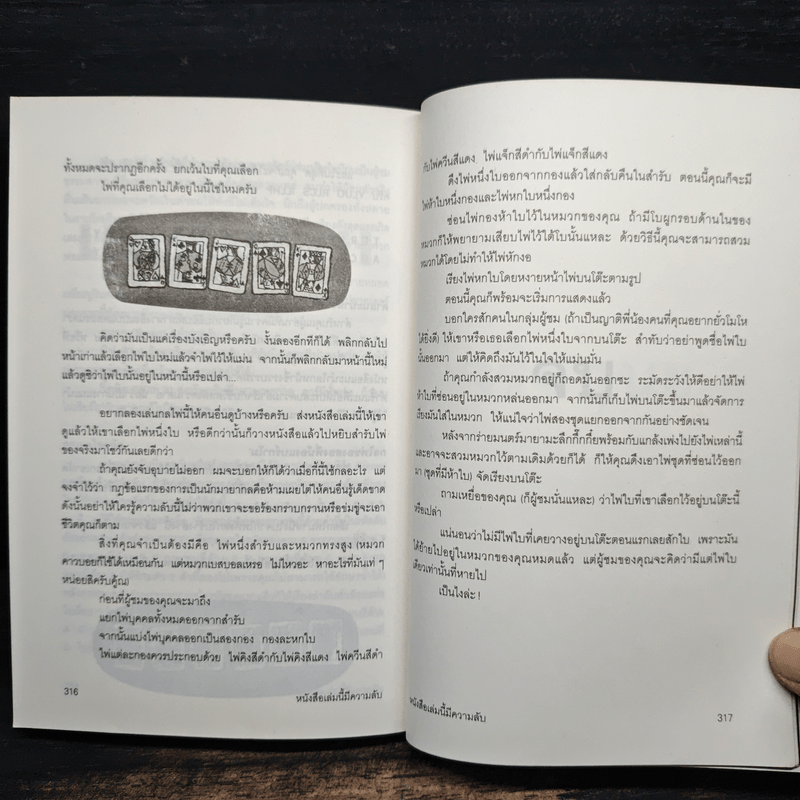 ทั้งหมดจะปรากฏอีกครั้ง ยกเว้นใบที่คุณเลือก
ไพ่ที่คุณเลือกไม่ได้อยู่ในนี้ใช่ไหมครับ
คิดว่ามันเป็นแค่เรื่องบังเอิญหรือครับ งั้นลองอีกทีก็ได้ พลิกกลับไป
หน้าเก่าแล้วเลือกไพ่ใบใหม่แล้วจำไพ่ไว้ให้แม่น จากนั้นก็พลิกกลับมาหน้านี้ใหม่
แล้วดูซิว่าไพ่ใบนั้นอยู่ในหน้านี้หรือเปล่า...
อยากลองเล่นกลไพ่นี้ให้คนอื่นดูบ้างหรือครับ ส่งหนังสือเล่มนี้ให้เขา
ดูแล้วให้เขาเลือกไพ่หนึ่งใบ หรือดีกว่านั้นก็วางหนังสือแล้วไปหยิบสำรับไพ่
ของจริงมาโชว์กันเลยดีกว่า
ถ้าคุณยังจับอุบายไม่ออก ผมจะบอกให้ก็ได้ว่าเมื่อกี้นี้ใช้กลอะไร แต่
จงจำไว้ว่า กฎข้อแรกของการเป็นนักมายากลคือห้ามเผยไต๋ให้คนอื่นรู้เด็ดขาด
ดังนั้นอย่าให้ใครรู้ความลับนี้ไม่ว่าพวกเขาจะขอร้องกราบกรานหรือข่มขู่จะเอา
ชีวิตคุณก็ตาม
สิ่งที่คุณจำเป็นต้องมีคือ ไพ่หนึ่งสำรับและหมวกทรงสูง (หมวก
คาวบอยก็ใช้ได้เหมือนกัน แต่หมวกเบสบอลเหรอ ไม่ไหวอะ หาอะไรที่มันเท่ ๆ
หน่อยสิครับคู้ณ)
ก่อนที่ผู้ชมของคุณจะมาถึง
แยกไพ่บุคคลทั้งหมดออกจากสำรับ
จากนั้นแบ่งไพ่บุคคลออกเป็นสองกอง กองละหกใบ
ไพ่แต่ละกองควรประกอบด้วย ไพ่คิงสีดำกับไพ่คิงสีแดง ไพ่ควีนสีดำ
316
หนังสือเล่มนี้มีความลับ
กับไพ่ควีนสีแดง ไพ่แจ็กสีดำกับไพ่แจ็กสีแดง
ดึงไพ่หนึ่งใบออกจากกองแล้วใส่กลับคืนในสำรับ ตอนนี้คุณก็จะมี
ไพ่ห้าใบหนึ่งกองและไพ่หกใบหนึ่งกอง
ซ่อนไพ่กองห้าใบไว้ในหมวกของคุณ ถ้ามีโบผูกรอบด้านในของ
หมวกก็ให้พยายามเสียบไพ่ไว้ใต้โบนั้นแหละ ด้วยวิธีนี้คุณจะสามารถสวม
หมวกได้โดยไม่ทำให้ไพ่หักงอ
เรียงไพ่หกใบโดยหงายหน้าไพ่บนโต๊ะตามรูป
ตอนนี้คุณก็พร้อมจะเริ่มการแสดงแล้ว
บอกใครสักคนในกลุ่มผู้ชม (ถ้าเป็นญาติพี่น้องคนที่คุณอยากยั่วโมโห
ได้ยิ่งดี) ให้เขาหรือเธอเลือกไพ่หนึ่งใบจากบนโต๊ะ สำทับว่าอย่าพูดชื่อไพ่ใบ
นั้นออกมา แต่ให้คิดถึงมันไว้ในใจให้แม่นมั่น
ถ้าคุณกำลังสวมหมวกอยู่ก็ถอดมันออกซะ ระมัดระวังให้ดีอย่าให้ไพ่
ห้าใบที่ซ่อนอยู่ในหมวกหล่นออกมา จากนั้นก็เก็บไพ่บนโต๊ะขึ้นมาแล้วจัดการ
เรียงมันใส่ในหมวก ให้แน่ใจว่าไพ่สองชุดแยกออกจากกันอย่างชัดเจน
หลังจากร่ายมนตร์มายามะลึกกึ๊กกึ๋ยพร้อมกับแกล้งเพ่งไปยังไพ่เหล่านี้
และอาจจะสวมหมวกไว้ตามเดิมด้วยก็ได้ ก็ให้คุณดึงเอาไพ่ชุดที่ซ่อนไว้ออก
มา (ชุดที่มีห้าใบ) จัดเรียงบนโต๊ะ
ถามเหยื่อของคุณ (ก็ผู้ชมนั่นแหละ) ว่าไพ่ใบที่เขาเลือกไว้อยู่บนโต๊ะนี้
หรือเปล่า
แน่นอนว่าไม่มีไพ่ใบที่เคยวางอยู่บนโต๊ะตอนแรกเลยสักใบ เพราะมัน
ได้ย้ายไปอยู่ในหมวกของคุณหมดแล้ว แต่ผู้ชมของคุณจะคิดว่ามีแต่ไพ่ใบ
เดียวเท่านั้นที่หายไป
เป็นไงล่ะ !
หนังสือเล่มนี้มีความลับ
317